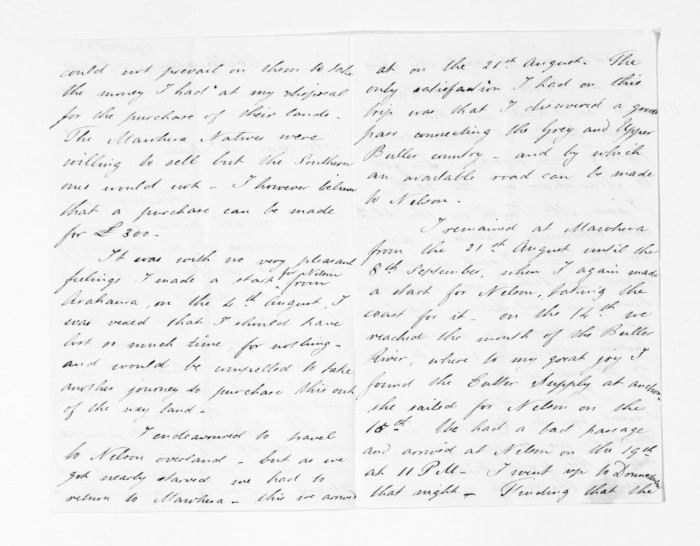 could not prevail on them to take
the money I had at my disposal
for the purchase of their lands -
The Mawhera Natives were
willing to sell but the Southern
ones would not - I however believe
that a purchase can be made
for £300 -
It was with no very pleasant
feelings I made a start for Nelson from
Arahaura, on the 4th August, I
was vexed that I should have
lost so much time, for nothing -
and would be compelled to take
another journey to purchase this out
of the way land -
I endeavoured to travel
to Nelson overland - but as we
got nearly starved we had to
return to Mawhera - this we arrived
at on the 21st August. The
only satisfaction I had on this
trip was that I discovered a good
pass connecting the Grey and Upper
Buller country - and by which
an available road can be made
to Nelson -
I remained at Mawhera
from the 21st August until the
8th September, when I again made
a start for Nelson, taking the
coast for it - on the 14th we
reached the mouth of the Buller
River, where to my great joy I
found the Cutter Supply at anchor -
she sailed for Nelson on the
16th We had a bad passage
and arrived at Nelson on the 19th
at 11 P.M - I went up to
that night - Finding that the